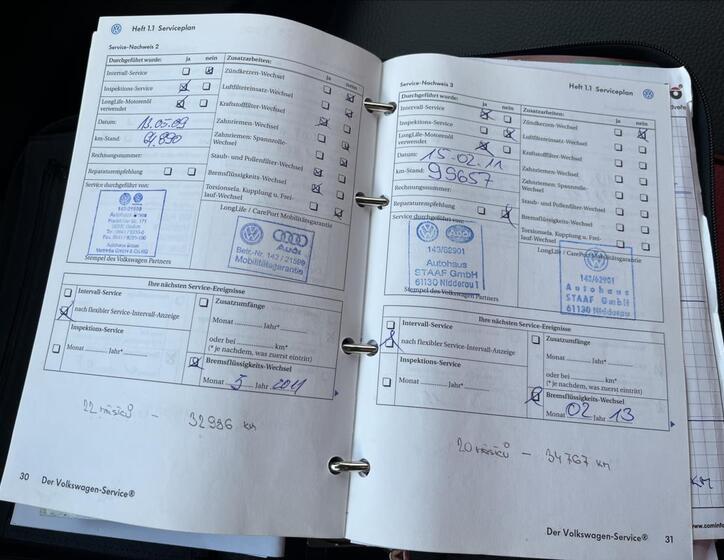 Heft 1.1 Serviceplan
Service-Nachweis 2
Durchgeführt wurde: ja nein
Intervall-Service
Inspektions-Service
LongLife-Motorenöl verwendet
Datum: 13.05.09
km-Stand: 64.890
Rechnungsnummer:
Reparaturempfehlung
Service durchgeführt von:
143/21598
Autohaus
Stempel des Volkswagen Partners
Zusatzarbeiten: ja nein
Zündkerzen-Wechsel
Luftfiltereinsatz-Wechsel
Kraftstofffilter-Wechsel
Zahnriemen-Wechsel
Zahnriemen: Spannrolle-
Wechsel
Staub- und Pollenfilter-Wechsel
Bremsflüssigkeits-Wechsel
Torsionsela. Kupplung u. Frei-
lauf-Wechsel
LongLife / CarePort Mobilitätsgarantie
Audi
Betr.-Nr. 143 / 21598
Mobilitätsgarantie
Ihre nächsten Service-Ereignisse
Intervall-Service
nach flexibler Service-Intervall-Anzeige
Inspektions-Service
Monat Jahr*
Zusatzumfänge
Monat Jahr*
oder bei km*
(* je nachdem, was zuerst eintritt)
Bremsflüssigkeits-Wechsel
Monat 5 Jahr 2011
22 měsíců - 32986 km
30
Der Volkswagen-Service®
Heft 1.1 Serviceplan
Service-Nachweis 3
Durchgeführt wurde: ja nein
Intervall-Service
Inspektions-Service
LongLife-Motorenöl verwendet
Datum: 15.02.11
km-Stand: 99657
Rechnungsnummer:
Reparaturempfehlung
Service durchgeführt von:
Audi
143/62901
Autohaus
STAAF GmbH
61130 Nidderau 1
Stempel des Volkswagen Partners
Zusatzarbeiten: ja nein
Zündkerzen-Wechsel
Luftfiltereinsatz-Wechsel
Kraftstofffilter-Wechsel
Zahnriemen-Wechsel
Zahnriemen: Spannrolle-
Wechsel
Staub- und Pollenfilter-Wechsel
Bremsflüssigkeits-Wechsel
Torsionsela. Kupplung u. Frei-
lauf-Wechsel
LongLife / CarePort Mobilitätsgarantie
143/62901
Autohaus
STAAF GmbH
61130 Nidderau
Ihre nächsten Service-Ereignisse
Intervall-Service
nach flexibler Service-Intervall-Anzeige
Inspektions-Service
Monat Jahr*
Zusatzumfänge
Monat Jahr*
oder bei km*
(* je nachdem, was zuerst eintritt)
Bremsflüssigkeits-Wechsel
Monat 02 Jahr 13
20 měsíců - 34767 km
Der Volkswagen-Service®
31
KM